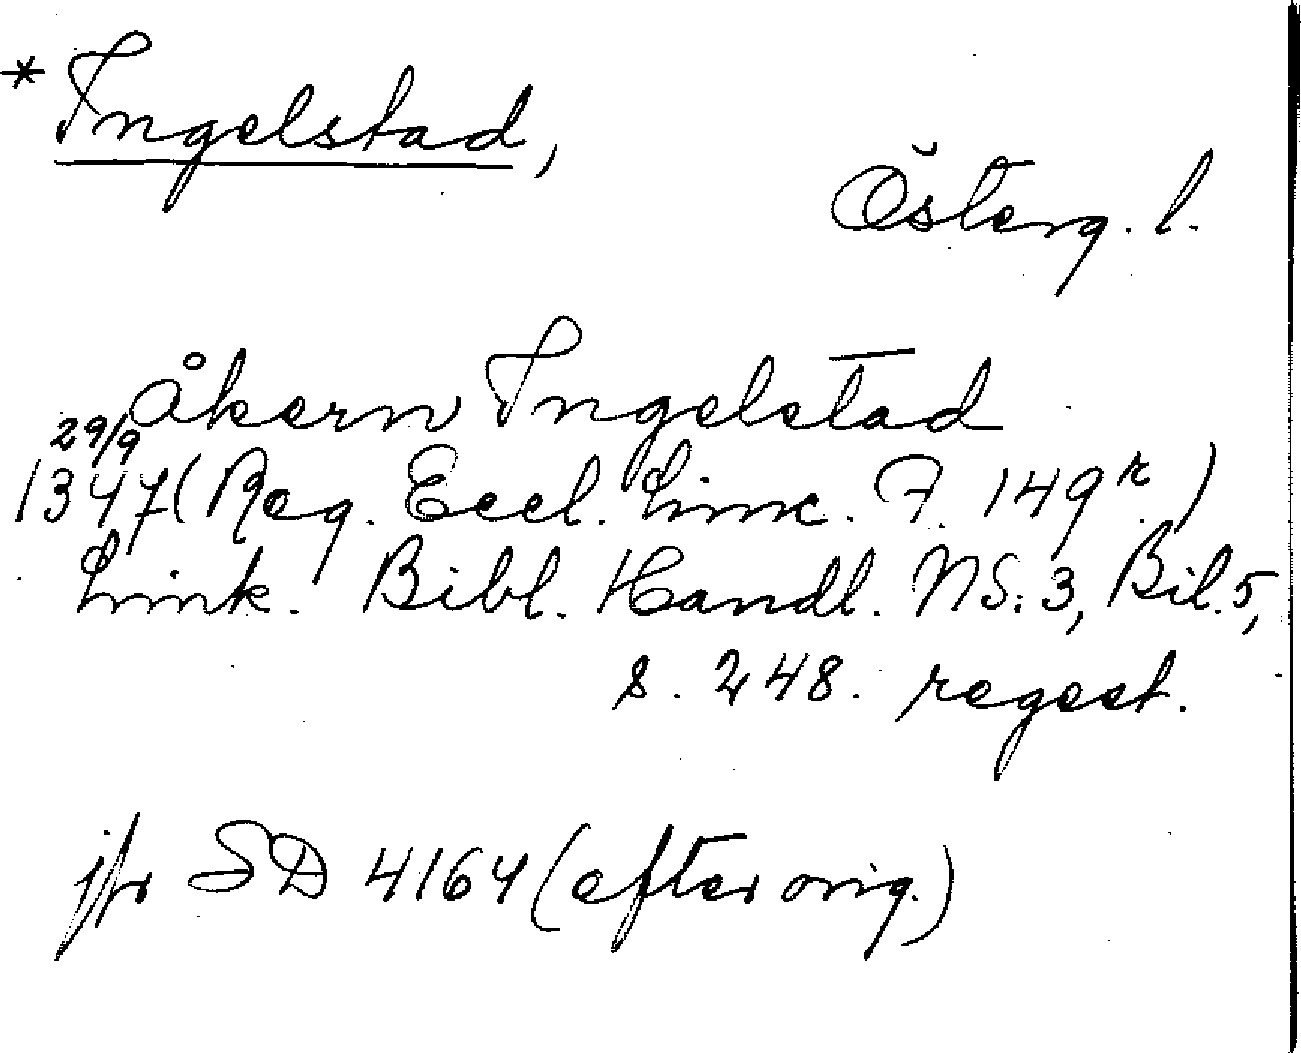 * Ingelstad,
Österg. l.
åkern Ingelstad
29/9
1347 (Reg. Eccl. Linc. F. 149r.)
Link. Bibl. Handl. NS: 3, Bil. 5,
s. 248. regest.
jfr SD 4164 (efter orig.)